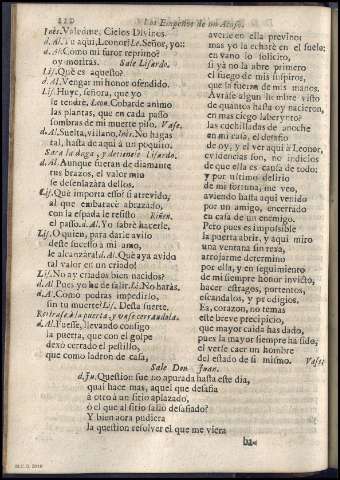 220 Los Empeños de un Acaso.
Inès. Valedme, Cielos Divinos.
d. Al. Tu aqui, Leonor? Le. Señor, yo::
d. Al. Como mi furor reprimo?
oy moriràs. Sale Lisardo.
Lis. Què es aquesto?
d. Al. Vengar mi honor ofendido.
Lis. Huye, señora, que yo
le tendrè. Leon. Cobarde animo
las plantas, que en cada passo
sombras de mi muerte piso. Vase.
d. Al. Suelta, villano. Inès. No hagas
tal, hasta de aqui à un poquito.
Saca la daga, y detienele Lisardo.
d. Al. Aunque fueran de diamante
tus brazos, el valor mio
se desenlazàra dellos.
Lis. Què importa esso? si atrevido,
al que embaracè abrazado,
con la espada le resisto Riñen.
el passo. d. Al. Yo sabrè hacerle.
Lis. O quien, para darle aviso
deste sucesso à mi amo,
le alcanzàra! d. Al. Què aya avido
tal valor en un criado!
Lis. No ay criados bien nacidos?
d. Al. Pues yo he de salir. Li. No haràs.
d. Al. Como podràs impedirlo,
sin tu muerte? Lis. Desta suerte.
Retirase à la puerta, y vase cerrandola.
d. Al. Fuesse, llevando consigo
la puerta, que con el golpe
dexò cerrado el pestillo,
que como ladron de casa,
averle en ella previno:
mas yo la echarè en el suelo;
en vano lo solicito,
si yà no la abre primero
el fuego de mis suspiros,
que la fuerza de mis manos.
Avràse algun hombre visto
de quantos hasta oy nacieron,
en mas ciego laberynto?
las cuchilladas de anoche
en mi casa, el desafio
de oy, y el ver aqui à Leonor,
evidencias son, no indicios
de que ella es causa de todo:
y por ultimo delirio
de mi fortuna, me veo,
aviendo hasta aqui venido
por un amigo, encerrado
en casa de un enemigo.
Pero pues es impossible
la puerta abrir, y aqui miro
una ventana sin rexa,
arrojarme determino
por ella, y en seguimiento
de mi siempre honor invicto,
hacer estragos, portentos,
escandalos, y prodigios.
Ea, corazon, no temas
este breve precipicio,
que mayor caida has dado,
pues la mayor siempre ha sido,
el verse caer un hombre
del estado de si mismo. Vase.
Sale Don Juan.
d. Ju. Question fue no apurada hasta este dia,
quai hace mas, aquel que desafia
à otro à un sitio aplazado,
ò el que al sitio saliò desafiado?
Y bien aora pudiera
la question resolver el que me viera
ba-